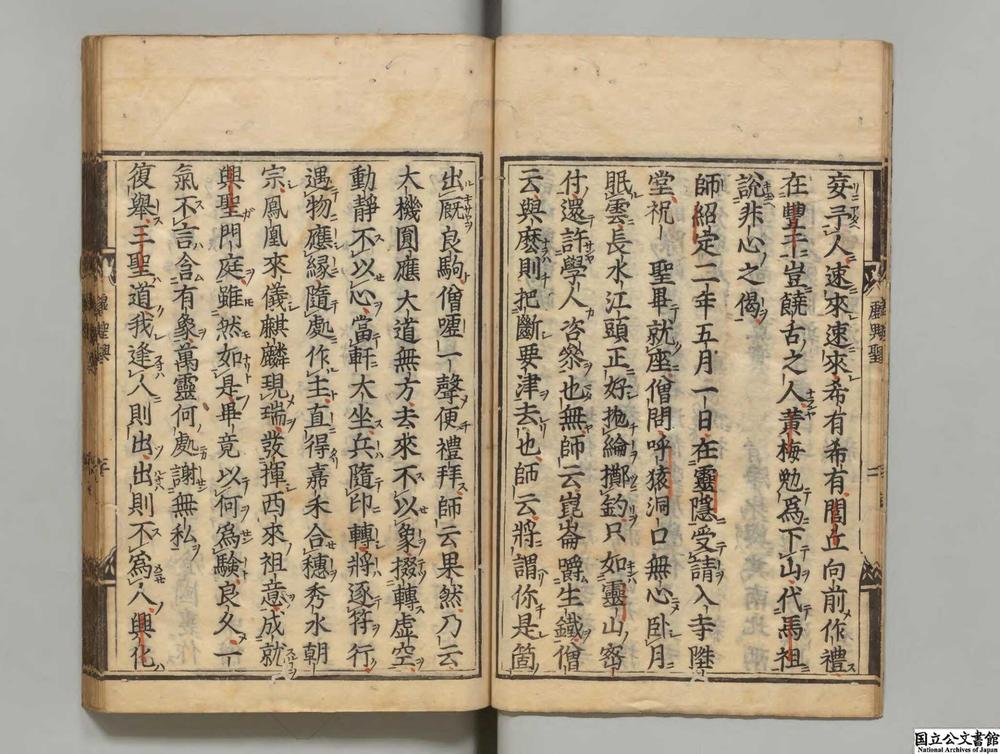 妾子人速來速來希有希有閭丘向前作禮
在豐干豈饒舌之人黃梅勉爲下山代馬祖
說非心之偈
師紹定二年五月一日在靈隱受請入寺陞
堂祝 聖畢就座僧問呼猿洞口無心臥月
眠雲長水江頭正好抛綸擲釣只如靈山密
付還許學人咨參也無師云崑崙嚼生鐵僧
云與麽則把斷要津去也師云將謂你是箇
出厩良駒僧喔一聲便禮拜師云果然乃云
大機圓應大道無方去來不以象掇轉虛空
動靜不以心當軒大坐兵隨印轉將逐符行
遇物應緣隨處作主直得嘉禾合穗秀水朝
宗鳳凰來儀麒麟現瑞發揮西來祖意成就
興聖門庭雖然如是畢竟以何爲驗良久一
氣不言含有象萬靈何處謝無私
復舉三聖道我逢人則出出則不爲人興化
興聖
二
国立公文書館
National Archives of Japan